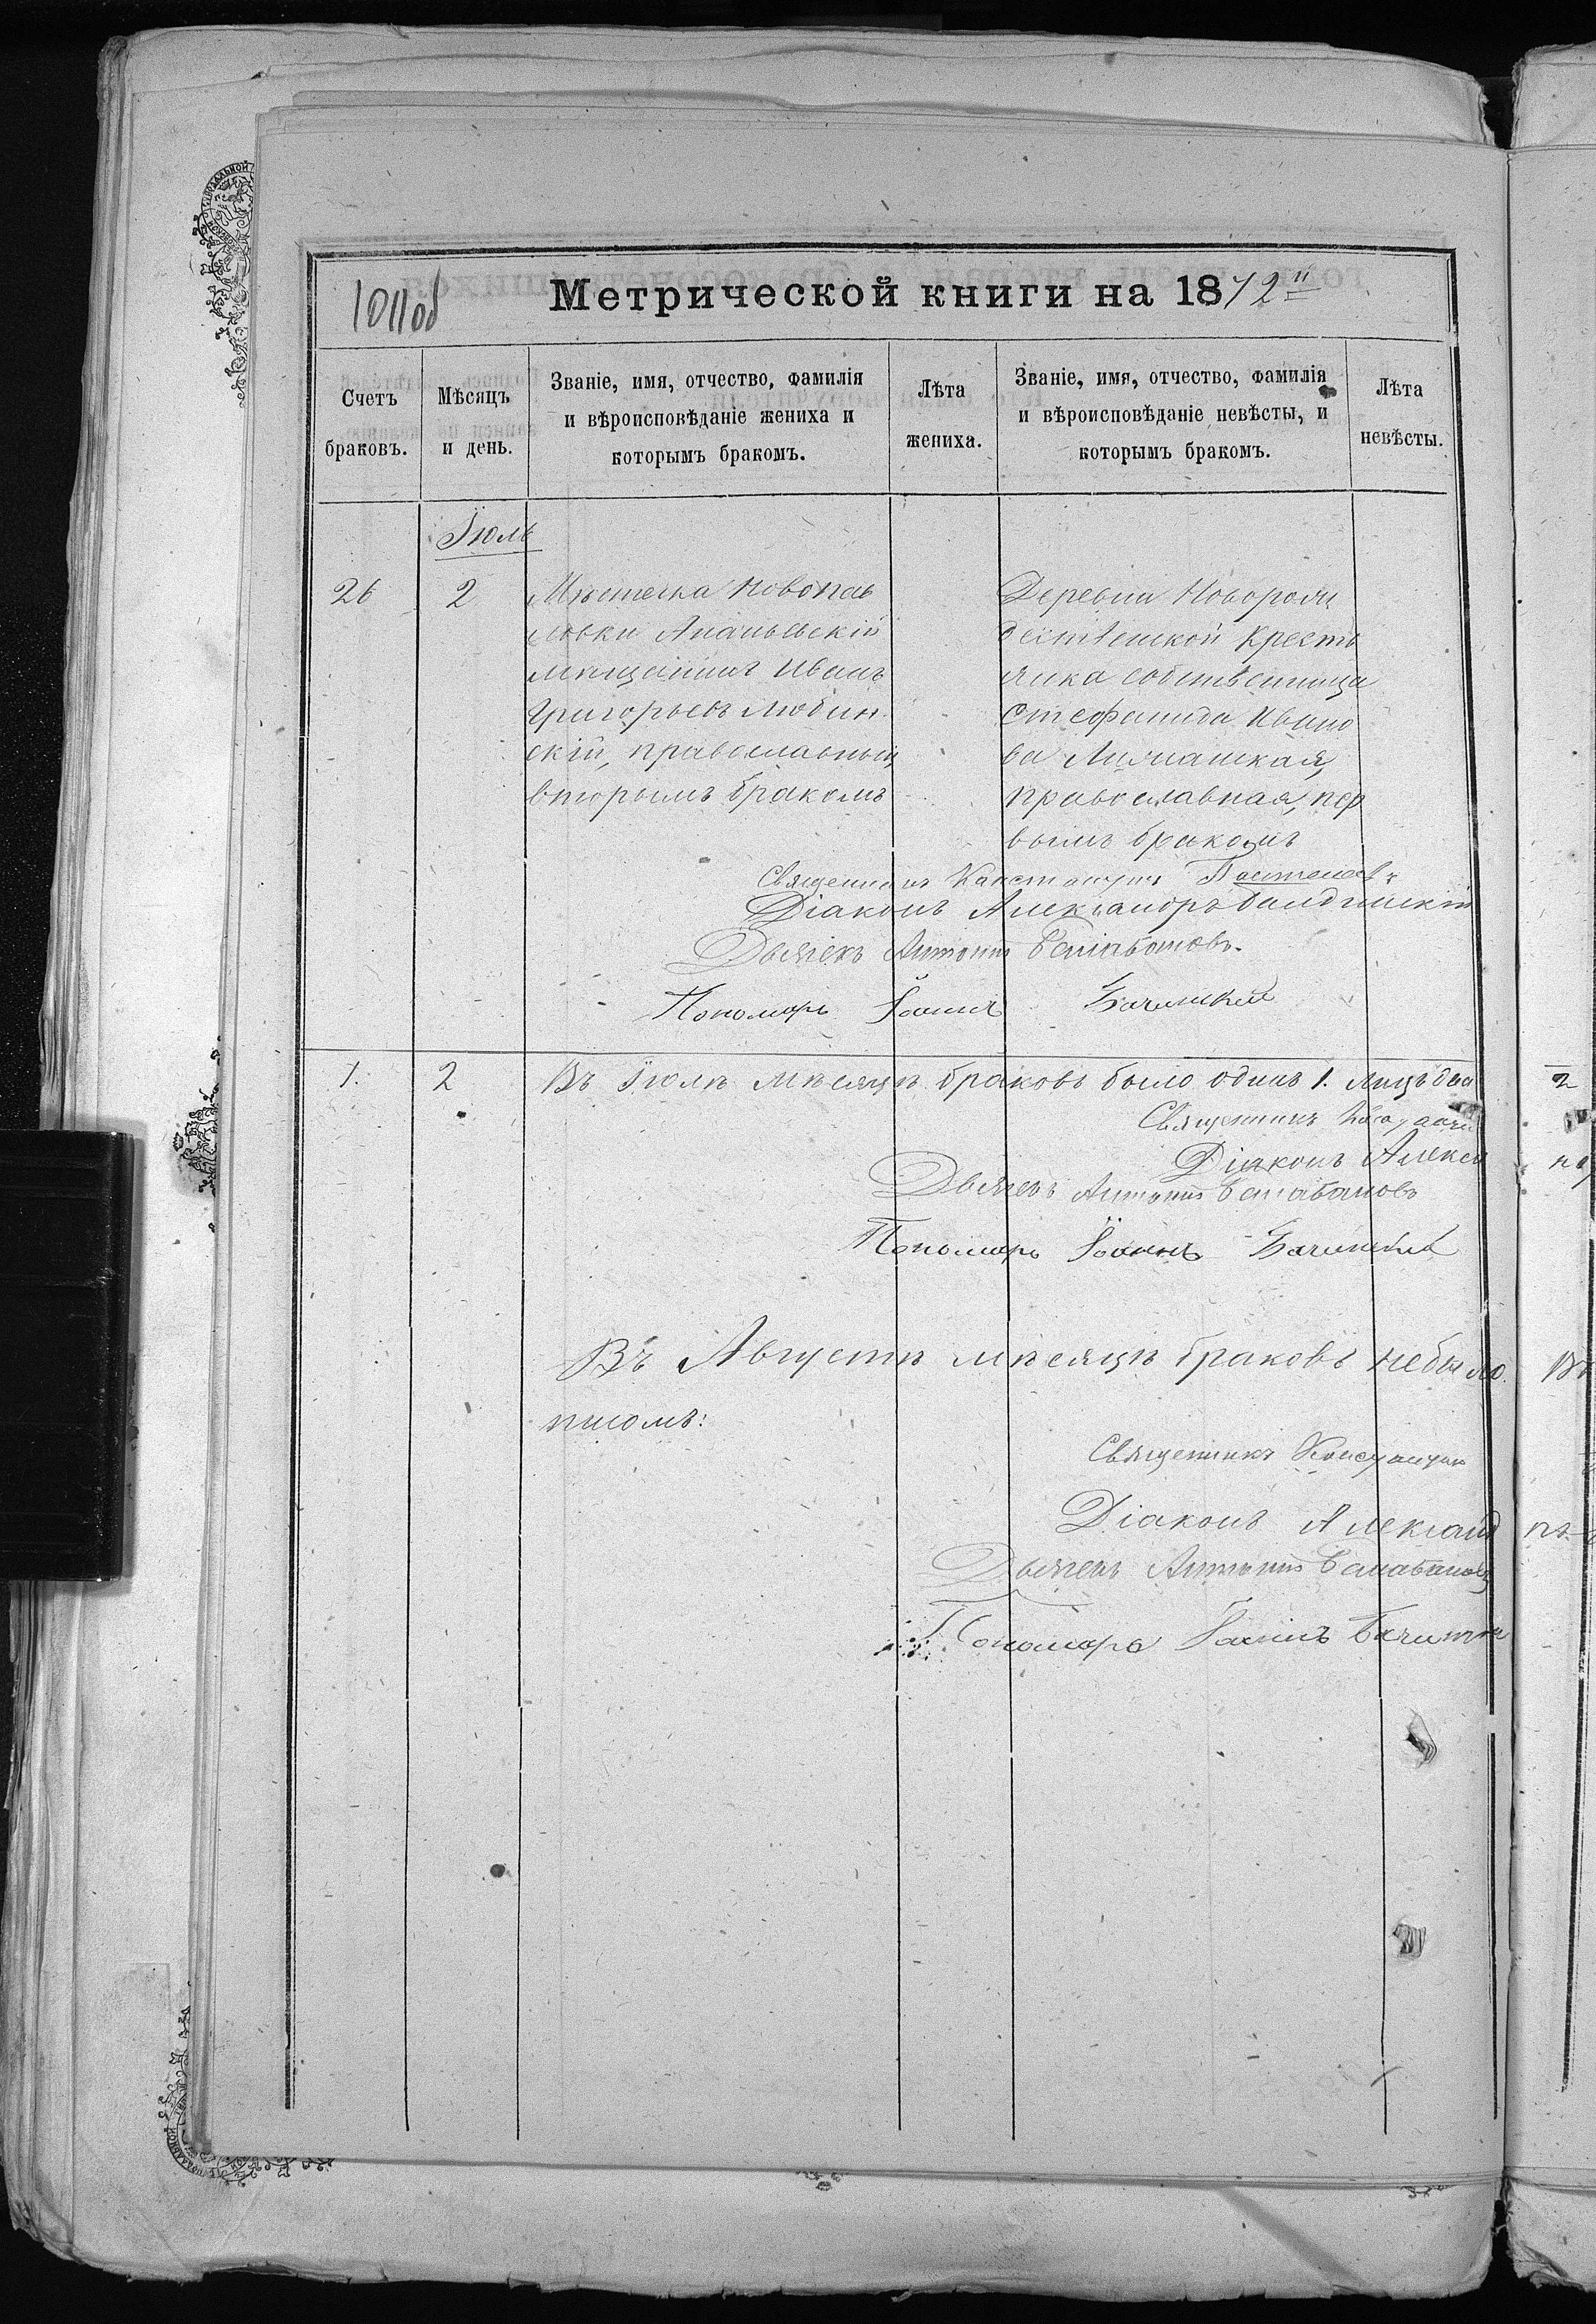 1011об
Метрической книги на 1872й
Счетъ браковъ.
Мѣсяцъ и день.
Званіе, имя, отчество, фамилія
и вѣроисповѣданіе жениха и
которымъ бракомъ.
Лѣта жениха.
Званіе, имя, отчество, фамилія
и вѣроисповѣданіе невѣсты, и
которымъ бракомъ.
Лѣта невѣсты.
Іюль
26
2
Мѣстечка Новопав
ловки Ананьевскій
мѣщанинъ Иванъ
Григорьевъ Любин
скій, православный,
вторымъ бракомъ
Деревни Новорож
дественской кресть
янка собственница
Стефанида Ивано
ва Лиманская,
православная, пер
вымъ бракомъ
Священникъ Константинъ
Діаконъ Александръ
Дьячекъ Антоній Балабановъ.
Пономарь Іоаннъ Бачинскій
1.
2
Въ Іюлѣ мѣсяцѣ браковъ было одинъ 1. лицъ два
2
Священникъ
Діаконъ Алекса
Дьячекъ Антоній Балабановъ
Пономарь Іоаннъ Бачинскій
Въ Августѣ мѣсяцѣ браковъ небыло.
Священникъ Константин
Діаконъ Александ
Дьячекъ Антоній Балабановъ
Пономарь Іоаннъ Бачинскі